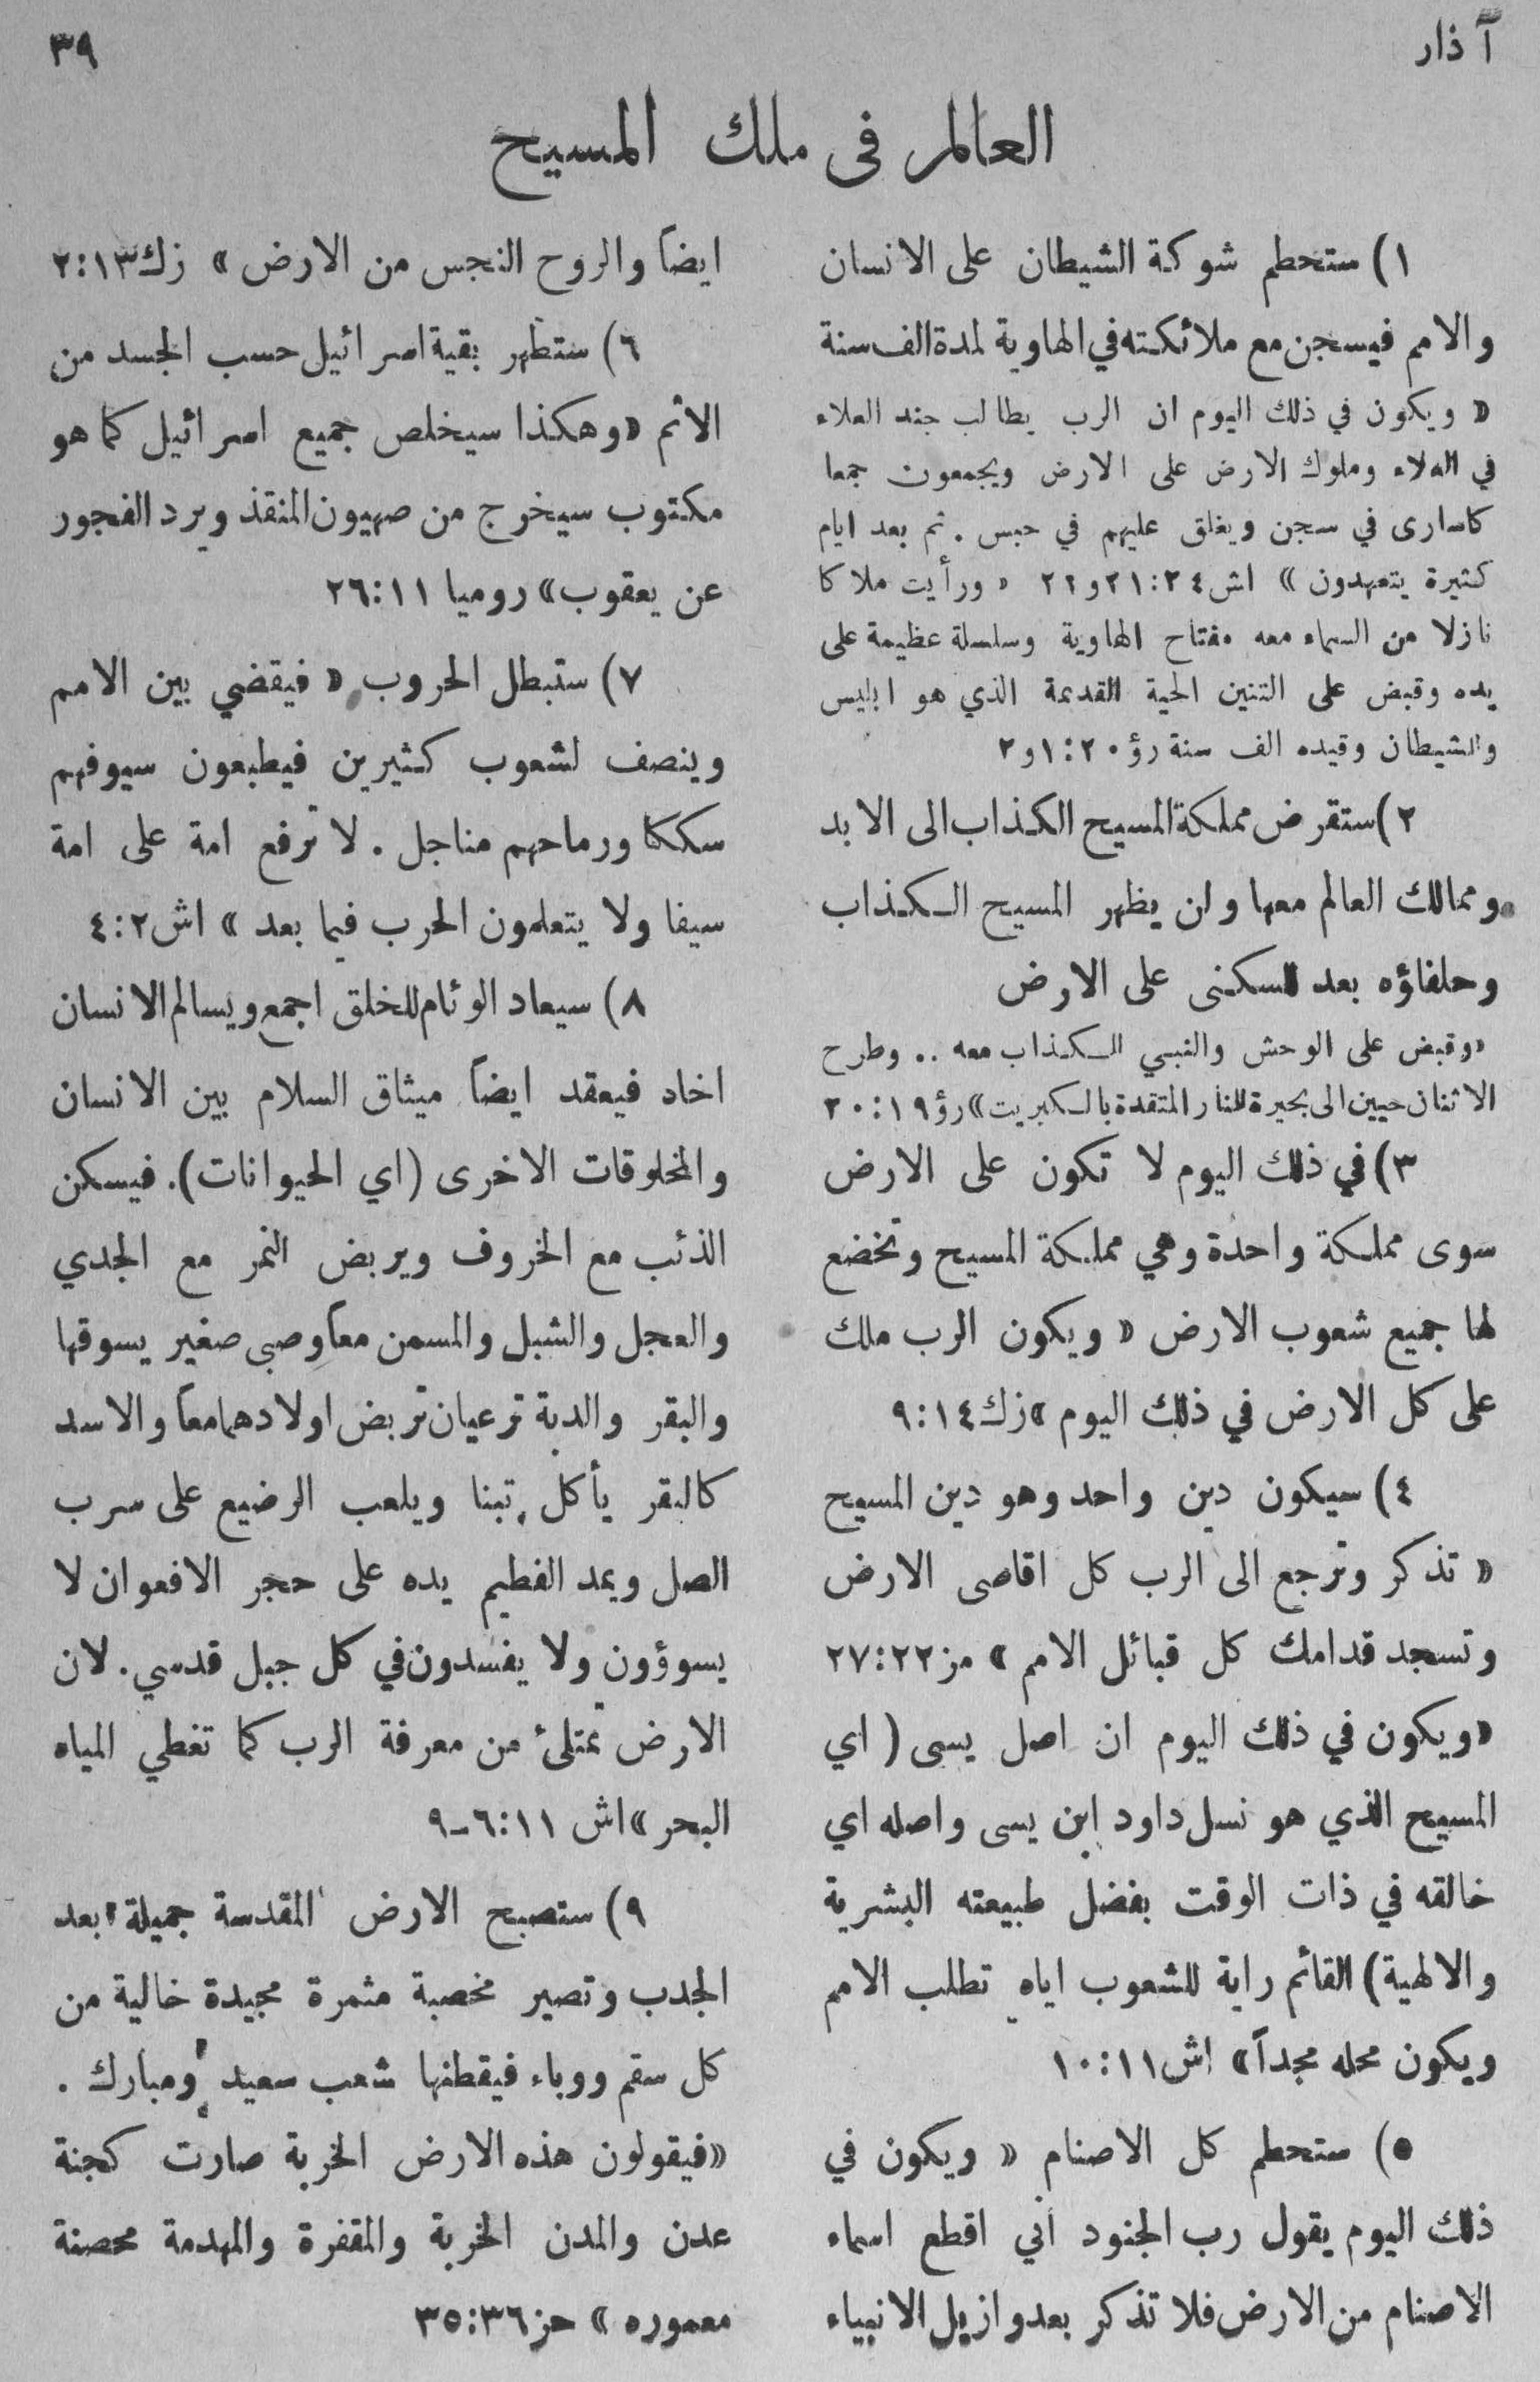 آذار
٣٩
العالم في ملك المسيح
١) ستحطم شوكة الشيطان على الانسان
والامم فيسجن مع ملائكته في الهاوية لمدة الف سنة
« ويكون في ذلك اليوم ان الرب يطالب جند العلاء
في العلاء وملوك الارض على الارض ويجمعون جمعا
كاسارى في سجن ويغلق عليهم في حبس . ثم بعد ايام
كثيرة يتعهدون » اش ٢٤:٢١و٢٢ « ورأيت ملاكا
نازلا من السماء معه مفتاح الهاوية وسلسلة عظيمة على
يده وقبض على التنين الحية القديمة الذي هو ابليس
والشيطان وقيده الف سنة رؤ ٢٠:١و٢
٢) ستقرض مملكة المسيح الكذاب الى الابد
وممالك العالم معها ولن يظهر المسيح الكذاب
وحلفاؤه بعد لسكنى على الارض
«وقبض على الوحش والنبي الكذاب معه .. وطرح
الاثنان حيين الى بحيرة النار المتقدة بالكبريت» رؤ ١٩:٢٠
٣) في ذلك اليوم لا تكون على الارض
سوى مملكة واحدة وهي مملكة المسيح وتخضع
لها جميع شعوب الارض « ويكون الرب ملك
على كل الارض في ذلك اليوم » زك ١٤:٩
٤) سيكون دين واحد وهو دين المسيح
« تذكر وترجع الى الرب كل اقاصى الارض
وتسجد قدامك كل قبائل الامم » مز ٢٢:٢٧
«ويكون في ذلك اليوم ان اصل يسى ( اي
المسيح الذي هو نسل داود ابن يسى واصله اي
خالقه في ذات الوقت بفضل طبيعته البشرية
والالهية) القائم راية للشعوب اياه تطلب الامم
ويكون محله مجداً» اش ١١:١٠
٥) ستحطم كل الاصنام « ويكون في
ذلك اليوم يقول رب الجنود اني اقطع اسماء
الاصنام من الارض فلا تذكر بعد وازيل الانبياء
ايضاً والروح النجس من الارض » زك ١٣:٢
٦) ستطهر بقية اسرائيل حسب الجسد من
الاثم «وهكذا سيخلص جميع اسرائيل كما هو
مكتوب سيخرج من صهيون المنقذ ويرد الفجور
عن يعقوب» روميا ١١:٢٦
٧) ستبطل الحروب « فيقضي بين الامم
وينصف لشعوب كثيرين فيطبعون سيوفهم
سككا ورماحهم مناجل . لا ترفع امة على امة
سيفا ولا يتعلمون الحرب فيما بعد » اش ٢:٤
٨) سيعاد الوئام للخلق اجمع ويسالم الانسان
اخاه فيعقد ايضاً ميثاق السلام بين الانسان
والمخلوقات الاخرى (اي الحيوانات). فيسكن
الذئب مع الخروف ويربض النمر مع الجدي
والعجل والشبل والمسمن معاً وصبي صغير يسوقها
والبقر والدبة ترعيان تربض اولادهما معاً والاسد
كالبقر يأكل تبنا ويلعب الرضيع على سرب
الصل ويمد الفطيم يده على حجر الافعوان لا
يسوؤون ولا يفسدون في كل جبل قدسي. لان
الارض تمتلئ من معرفة الرب كما تغطي المياه
البحر » اش ١١:٦-٩
٩) ستصبح الارض المقدسة جميلة بعد
الجدب وتصير مخصبة مثمرة مجيدة خالية من
كل سقم ووباء فيقطنها شعب سعيد ومبارك .
«فيقولون هذه الارض الخربة صارت كجنة
عدن والمدن الخربة والمقفرة والمهدمة محصنة
معموره » حز ٣٦:٣٥